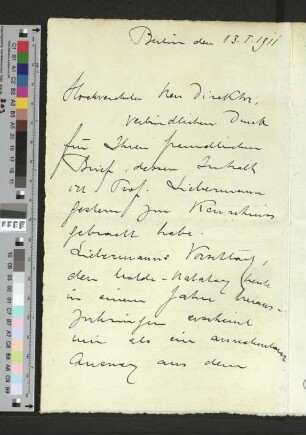 Berlin den 13. I. 1911
Hochverehrter Herr Direktor,
verbindlichen Dank
für Ihren freundlichen
Brief, dessen Inhalt
ich Prof. Liebermann
gestern zur Kenntnis
gebracht habe.
Liebermanns Vorschlag,
den Uhde-Katalog heute
in einem Jahre heraus-
zubringen erscheint
mir als ein annehmbarer
Ausweg aus dem